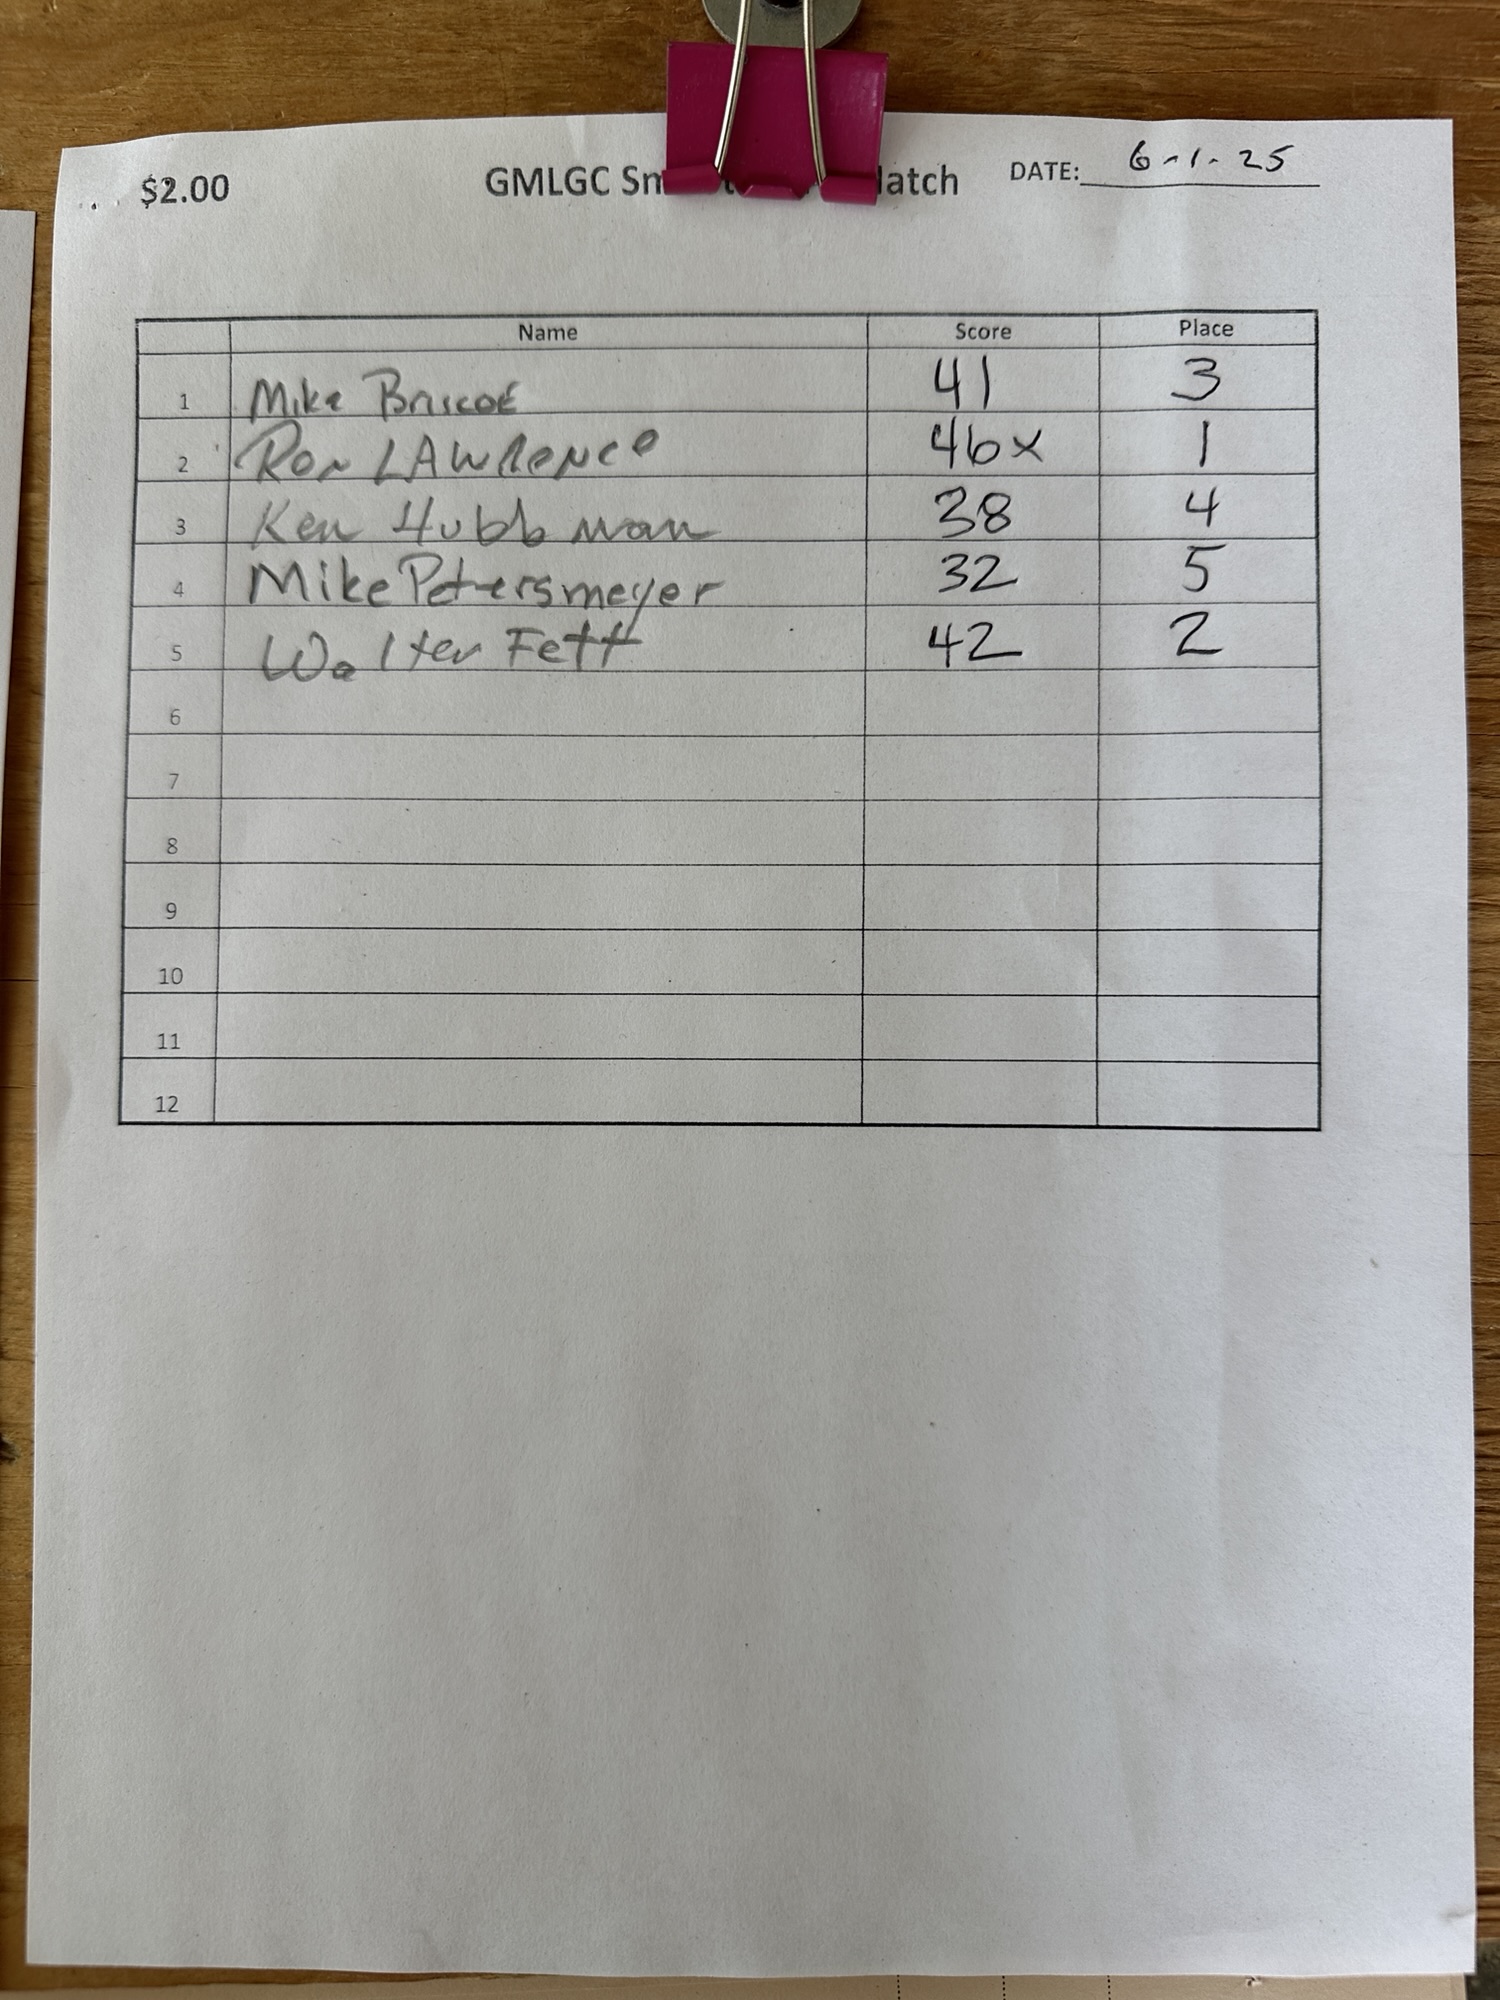 $2.00 GMLGC Sm latch DATE: 6-1-25
Name Score Place
1 Mike Briscoe 41 3
2 Ron LAWRence 46x 1
3 Ken Hubbman 38 4
4 Mike Petersmeyer 32 5
5 Walter Fett 42 2
6
7
8
9
10
11
12